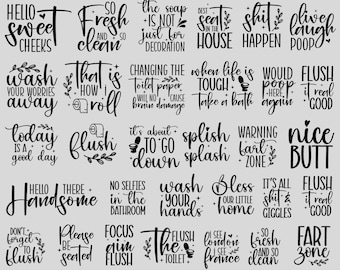 HELLO
sweet
CHEEKS
SO
Fresh
AND SO
clean
the soap
IS NOT
JUST FOR
DECORATION
BEST
SEAT IN
THE
HOUSE
shit
HAPPEN
live
laugh
POOP
wash
YOUR WORRIES
away
THAT IS
how I
roll
CHANGING THE
toilet paper
WILL NOT CAUSE
BRAIN DAMAGE
when life
IS TOUGH
Take a bath
WOULD
POOP
HERE
again
FLUSH
it real
GOOD
today
IS A
good day
flush
it's about
TO GO
down
splish
splash
WARNING
fart
ZONE
nice
BUTT
HELLO THERE
Handsome
NO SELFIES
IN THE
BATHROOM
wash
YOUR
hands
Bless
OUR LITTLE
home
IT'S ALL
shit &
GIGGLES
FLUSH
it real
GOOD
DON'T
forget to
flush
Please
BE
SEATED
FOCUS
aim
FLUSH
FLUSH
The
TOILET
I see
LONDON
I see
FRANCE
SO
fresh
AND SO
clean
FART
ZONE